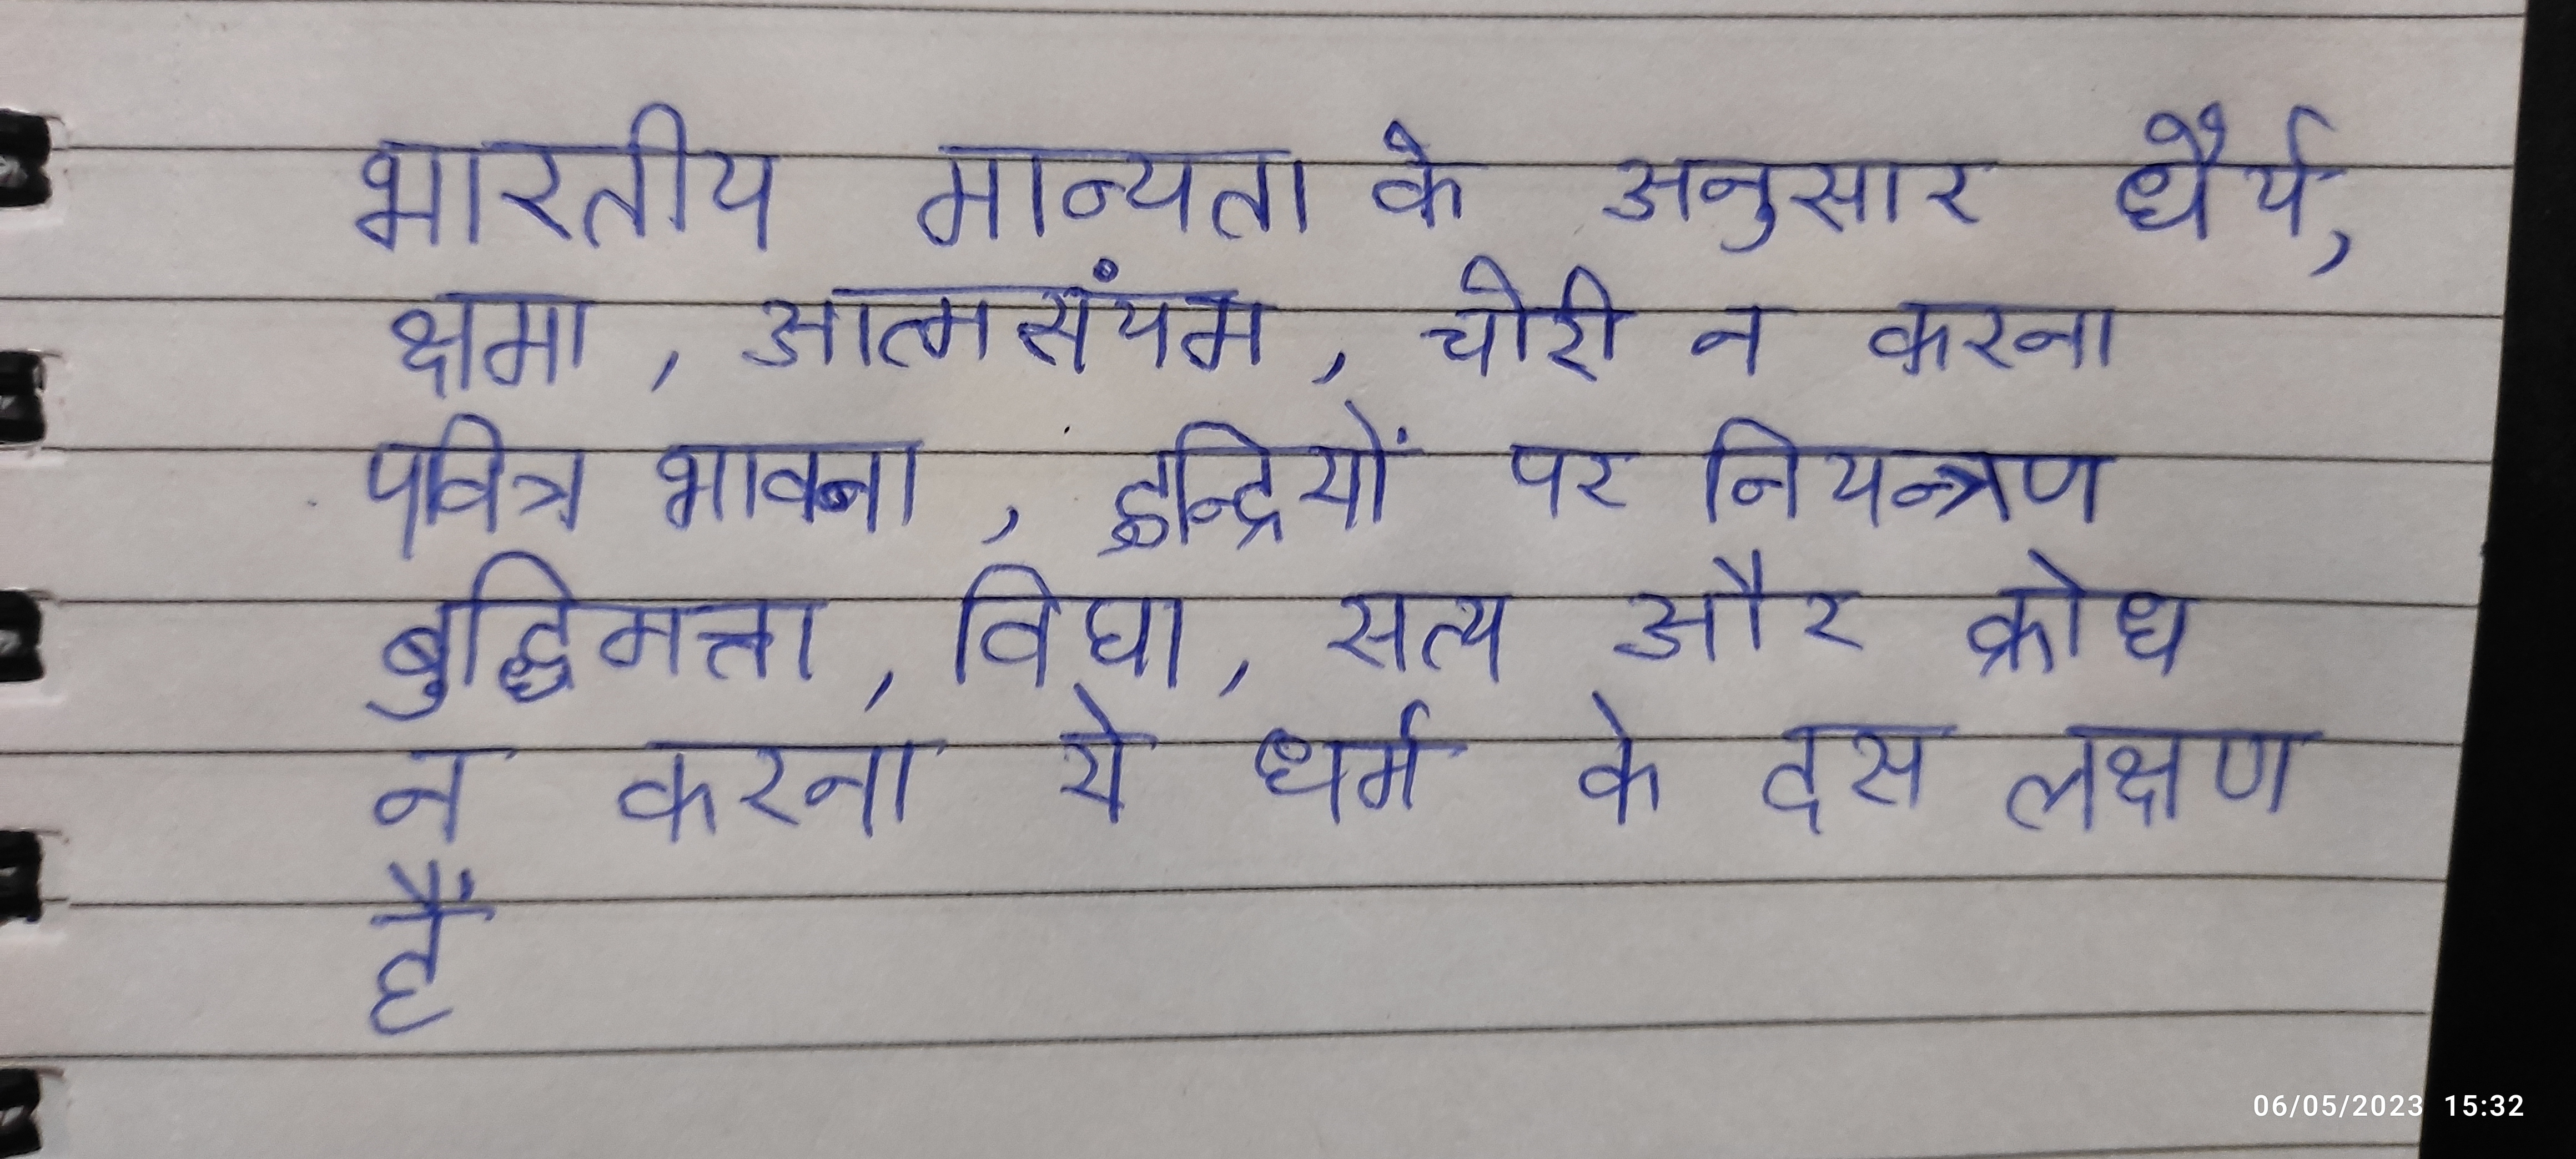 भारतीय मान्यता के अनुसार धैर्य,
क्षमा, आत्मसंयम, चोरी न करना
पवित्र भावना, इन्द्रियों पर नियन्त्रण
बुद्धिमत्ता, विघा, सत्य और क्रोध
न करना ये धर्म के दस लक्षण
हैं
06/05/2023 15:32